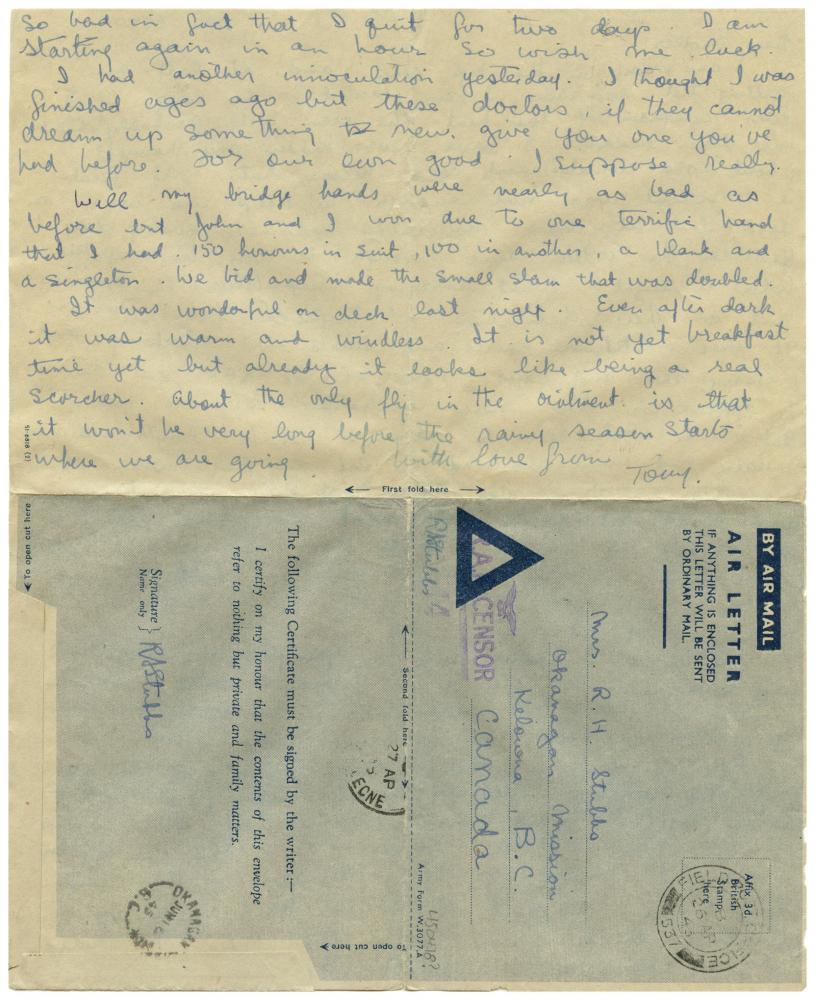 So bad in fact that I quit for two days. I am
starting again in an hour so wish me luck.
I had another innoculation yesterday. I thought I was
finished ages ago but these doctors, if they cannot
dream up something new, give you one you've
had before. For our own good I suppose really.
Well my bridge hands were nearly as bad as
before but John and I won due to one terrific hand
that I had. 150 honours in suit, 100 in another, a blank and
a singleton. We bid and made the small slam that was doubled.
It was wonderful on deck last night. Even after dark
it was warm and windless. It is not yet breakfast
time yet but already it looks like being a real
scorcher. About the only fly in the ointment is that
it won't be very long before the rainy season starts
where we are going. With love from Tony.
51-6808 (2)
First fold here
To open cut here
The following Certificate must be signed by the writer:—
I certify on my honour that the contents of this envelope
refer to nothing but private and family matters.
Signature } RAStubbs
Name only
Second fold here
To open cut here
27 AP
OKANAGAN
JUN
45
B.C.
BY AIR MAIL
AIR LETTER
IF ANYTHING IS ENCLOSED
THIS LETTER WILL BE SENT
BY ORDINARY MAIL.
Affix 3d.
British
Stamp
here
FIELD
26 AP
45
537
Mrs. R. H. Stubbs
Okanagan Mission
Kelowna, B.C.
Canada
CENSOR
RAStubbs
Army Form W.3077.A